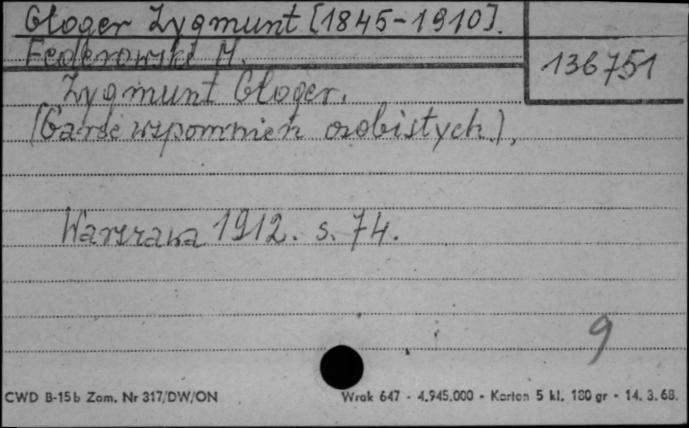 Gloger Zygmunt [1845-1910].
Federowski M.
136751
Zygmunt Gloger.
(Garść wspomnień osobistych.),
Warszawa 1912. s. 74.
9
CWD B-15b Zam. Nr 317/DW/ON
Wrak 647 - 4.945.000 - Karton 5 kl. 180 gr - 14. 3. 68.